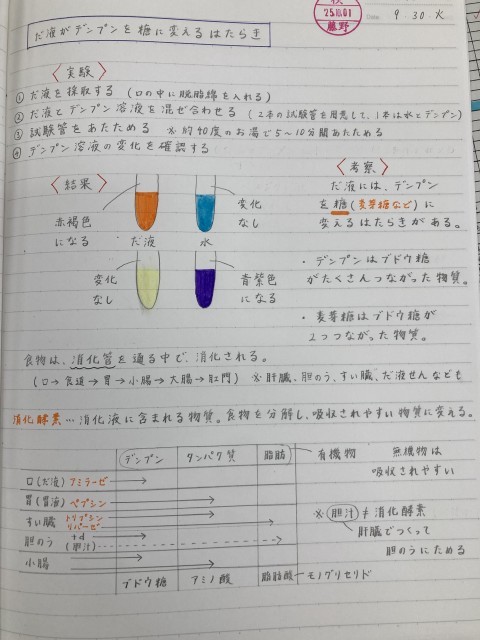 検
25.10.01
藤野
Date 9.30.火
だ液がデンプンを糖に変えるはたらき
〈実験〉
① だ液を採取する (口の中に脱脂綿を入れる)
② だ液とデンプン溶液を混ぜ合わせる (2本の試験管を用意して、1本は水とデンプン)
③ 試験管をあたためる ※約40度のお湯で5~10分間あたためる
④ デンプン溶液の変化を確認する
〈結果〉
赤褐色になる
だ液
水
変化なし
変化なし
青紫色になる
〈考察〉
だ液には、デンプン
を糖(麦芽糖など)に
変えるはたらきがある。
・デンプンはブドウ糖
がたくさんつながった物質。
・麦芽糖はブドウ糖が
2つつながった物質。
食物は、消化管を通る中で、消化される。
(口→食道→胃→小腸→大腸→肛門) ※肝臓、胆のう、すい臓、だ液せんなども
消化酵素…消化液に含まれる物質。食物を分解し、吸収されやすい物質に変える。
デンプン タンパク質 脂肪 有機物 無機物は
吸収されやすい
口(だ液)アミラーゼ
胃(胃液)ペプシン
すい臓 トリプシン リパーゼ
胆のう (胆汁)
小腸
ブドウ糖 アミノ酸 脂肪酸 モノグリセリド
※胆汁≠消化酵素
肝臓でつくって
胆のうにためる